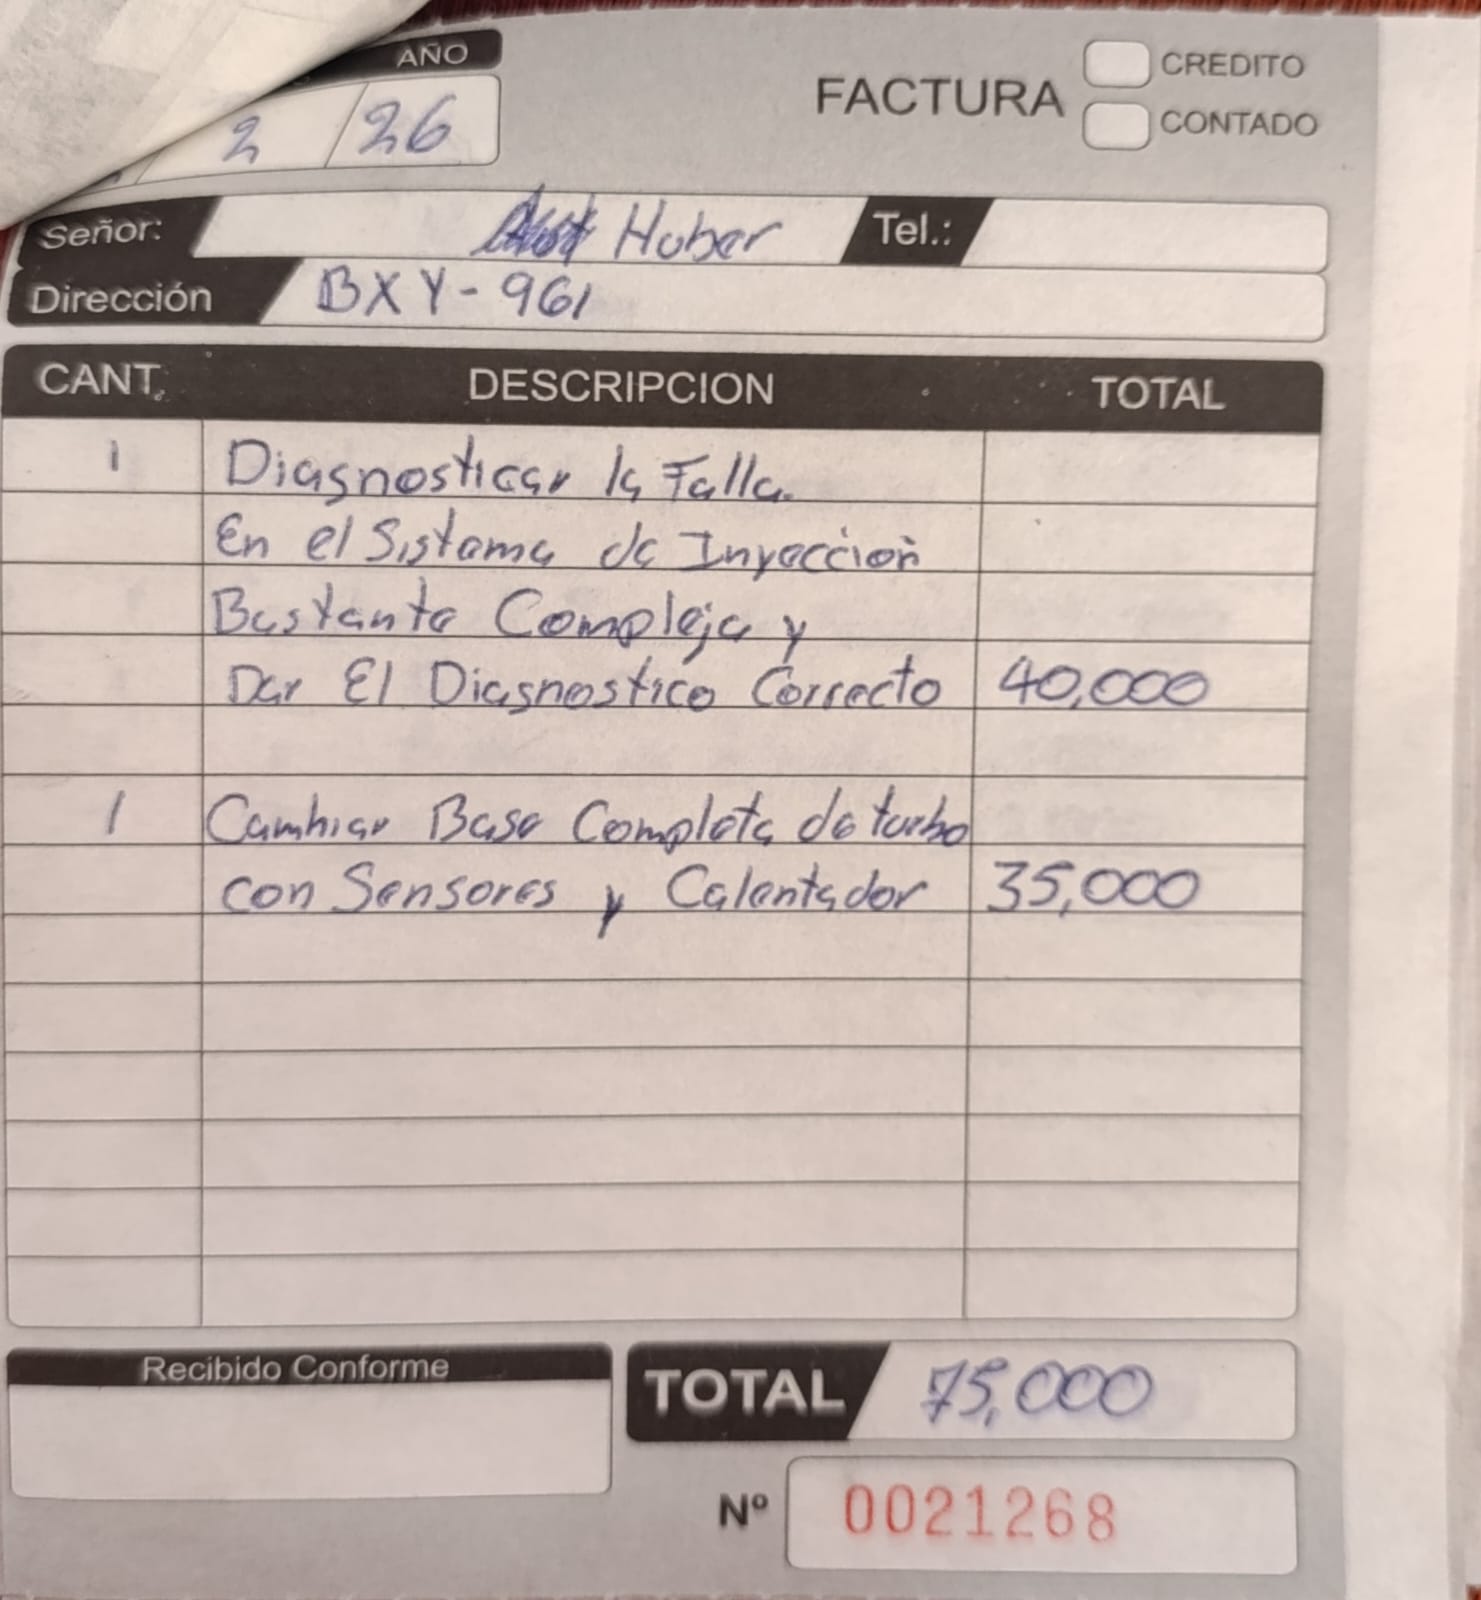 AÑO
2 / 26
FACTURA
CREDITO
CONTADO
Señor: Huber Tel.:
Dirección BXY-961
CANT. DESCRIPCION TOTAL
1 Diagnosticar la Falla.
En el Sistema de Inyección
Bastante Compleja y
Dar El Diagnostico Correcto 40,000
1 Cambiar Base Completa de turbo
con Sensores y Calentador 35,000
Recibido Conforme
TOTAL 75,000
Nº 0021268